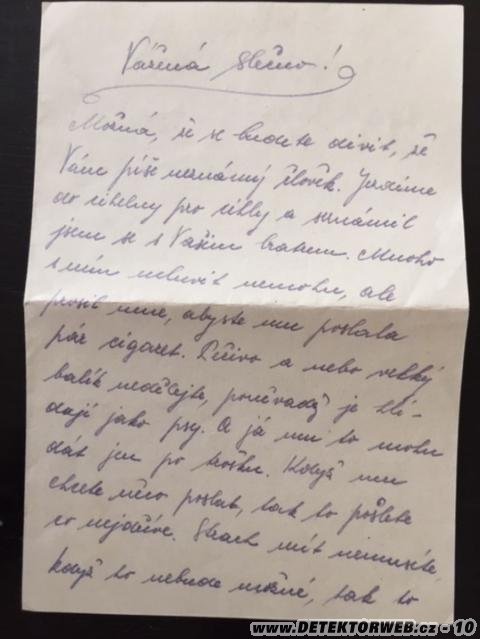 Vážená slečno!
Možná, že se budete divit, že
Vám píše neznámý člověk. Jezdíme
do cihelny pro cihly a seznámil
jsem se s Vašim bratrem. Mnoho
s ním mluvit nemohu, ale
prosil mne, abyste mu poslala
pár cigaret. Pečivo a nebo velký
balík nedělejte, poněvadž je hlí-
dají jako psy. A já mu to mohu
dát jen po trošku. Když mu
chcete něco poslat, tak to pošlete
co nejdříve. Strach mít nemusíte,
když to nebude možné, tak to
www.DETEKTORWEB.cz